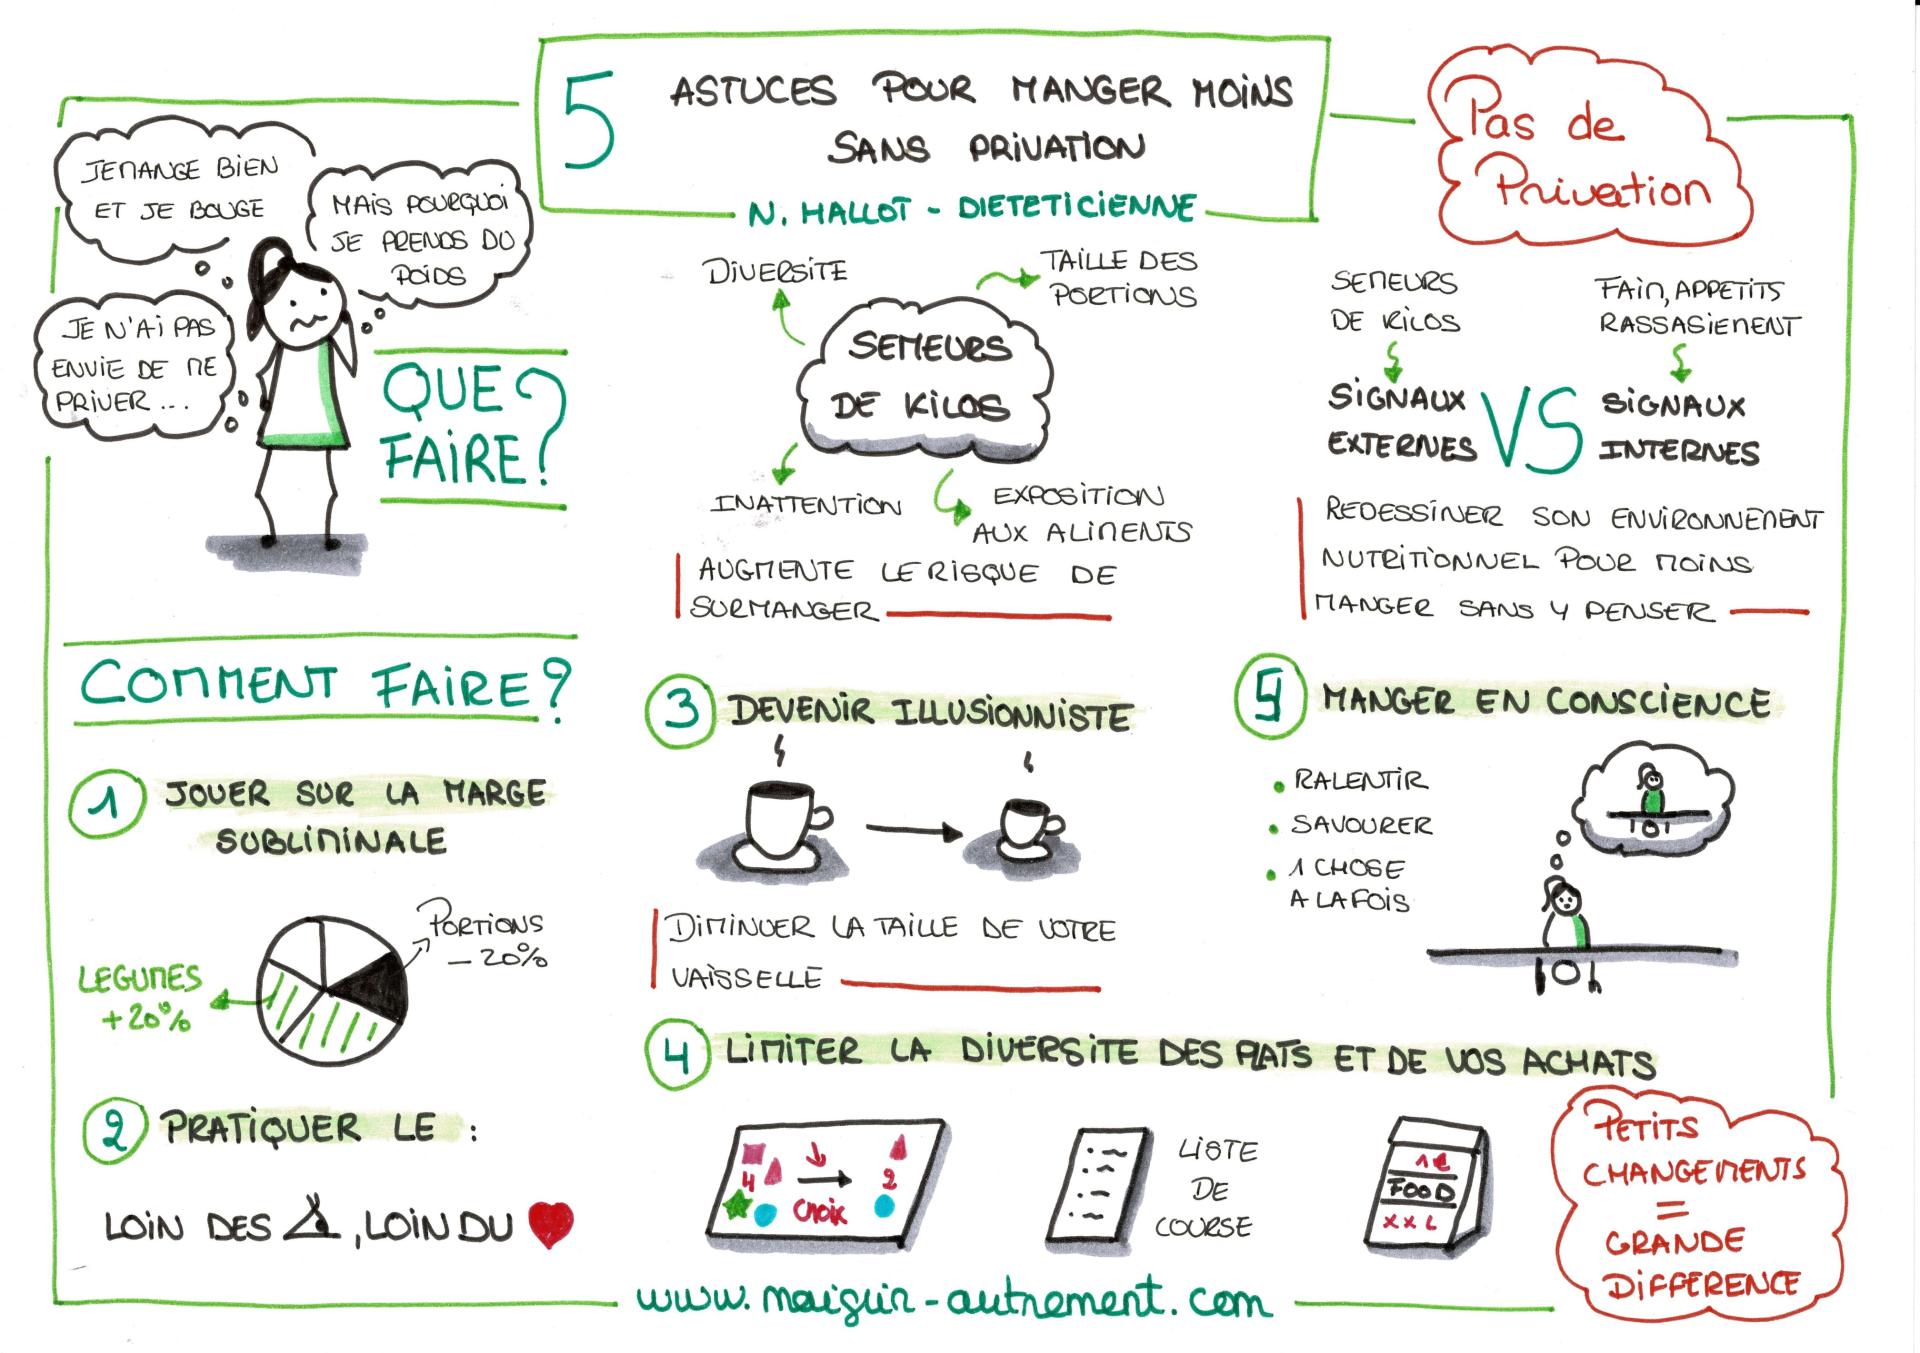 5 ASTUCES POUR MANGER MOINS
SANS PRIVATION
N. HALLOT - DIETETICIENNE
Pas de
Privation
JE MANGE BIEN
ET JE BOUGE
MAIS POURQUOI
JE PRENDS DU
POIDS
JE N'AI PAS
ENVIE DE ME
PRIVER ...
QUE
FAIRE ?
DIVERSITE
TAILLE DES
PORTIONS
SEMEURS
DE KILOS
INATTENTION
EXPOSITION
AUX ALIMENTS
AUGMENTE LE RISQUE DE
SURMANGER
SEMEURS
DE KILOS
FAIM, APPETITS
RASSASIEMENT
SIGNAUX
EXTERNES
VS
SIGNAUX
INTERNES
REDESSINER SON ENVIRONNEMENT
NUTRITIONNEL POUR MOINS
MANGER SANS Y PENSER
COMMENT FAIRE ?
1 JOUER SUR LA MARGE
SUBLIMINALE
PORTIONS
- 20%
LEGUMES
+ 20%
2 PRATIQUER LE :
LOIN DES , LOIN DU
3 DEVENIR ILLUSIONNISTE
DIMINUER LA TAILLE DE VOTRE
VAISSELLE
4 LIMITER LA DIVERSITE DES PLATS ET DE VOS ACHATS
4
CHOIX
2
LISTE
DE
COURSE
1€
FOOD
XXL
5 MANGER EN CONSCIENCE
• RALENTIR
• SAVOURER
• 1 CHOSE
A LA FOIS
PETITS
CHANGEMENTS
=
GRANDE
DIFFERENCE
www.maigrir-autrement.com